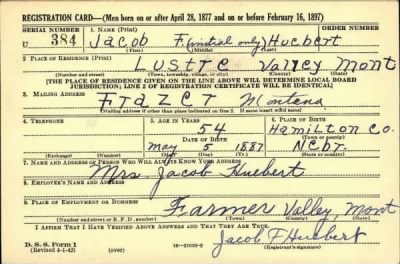 REGISTRATION CARD—(Men born on or after April 28, 1877 and on or before February 16, 1897)
SERIAL NUMBER 1. NAME (Print)
U 384 Jacob F (initial only) Huebert
(First) (Middle) (Last)
2. PLACE OF RESIDENCE (Print)
Lustre Valley Mont
(Number and street) (Town, township, village, or city) (County) (State)
[THE PLACE OF RESIDENCE GIVEN ON THE LINE ABOVE WILL DETERMINE LOCAL BOARD
JURISDICTION; LINE 2 OF REGISTRATION CERTIFICATE WILL BE IDENTICAL]
3. MAILING ADDRESS
Frazer Montana
[Mailing address if other than place indicated on line 2. If same insert word same]
4. TELEPHONE 5. AGE IN YEARS 6. PLACE OF BIRTH
54 Hamilton Co.
DATE OF BIRTH (Town or county)
May 5 1887 Nebr.
(Exchange) (Number) (Mo.) (Day) (Yr.) (State or country)
7. NAME AND ADDRESS OF PERSON WHO WILL ALWAYS KNOW YOUR ADDRESS
Mrs. Jacob Huebert
8. EMPLOYER'S NAME AND ADDRESS
9. PLACE OF EMPLOYMENT OR BUSINESS
Farmer Valley, Mont
(Number and street or R. F. D. number) (Town) (County) (State)
I AFFIRM THAT I HAVE VERIFIED ABOVE ANSWERS AND THAT THEY ARE TRUE.
D. S. S. Form 1
(Revised 4-1-42) (over) 16—21630-2 Jacob F Huebert